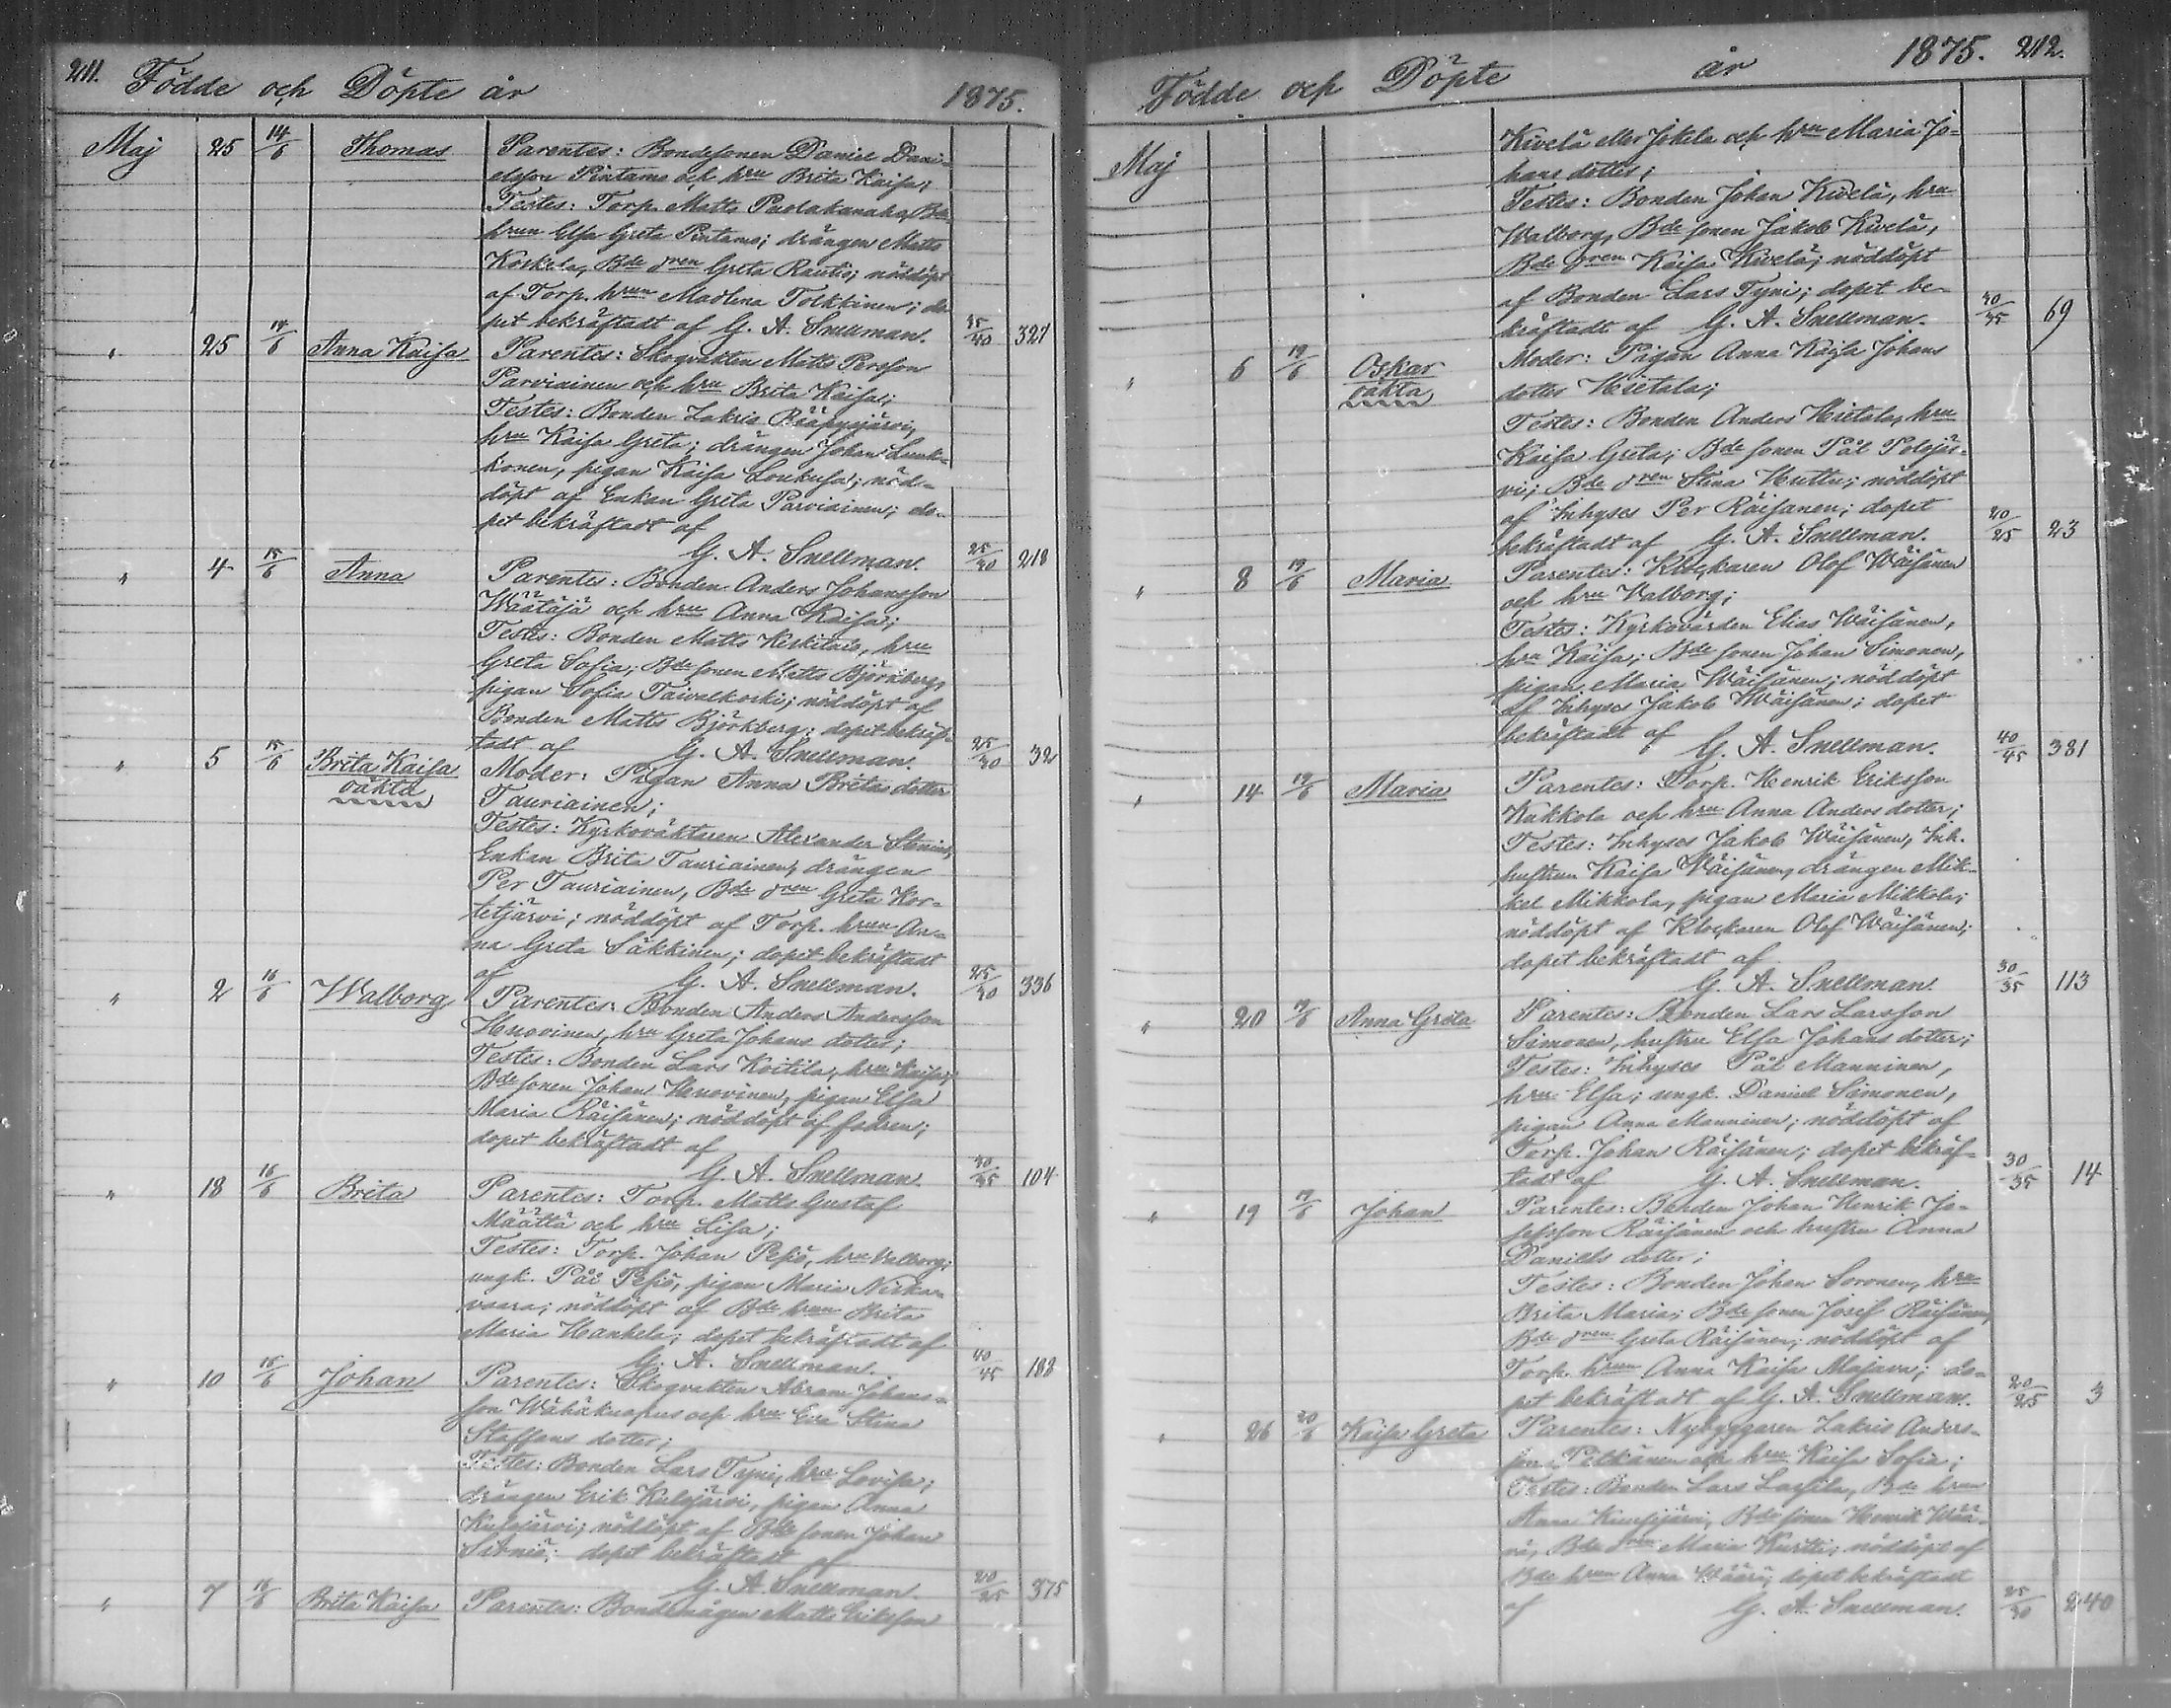 211. Födde och Döpte år 1875.
Maj 25 14/6 Thomas Parentes: Bondesonen Daniel Dani-
elsson Pintamo och hru Brita Kaisa;
Testes: Torp. Matts Puolakanaho, Bde
hrun Elsa Greta Pintamo; drängen Matts
Koskela, Bde dren Greta Rautio; nöddöpt
af Torp. hrun Madlena Tolkkinen; do-
pet bekräftadt af G. A. Snellman. 35/40 321
" 25 14/6 Anna Kaisa Parentes: Skogvakten Matts Persson
Parviainen och hru Brita Kaisa;
Testes: Bonden Zakris Rääpysjärvi,
hru Kaisa Greta; drängen Johan Lunk-
konen, pigan Kaisa Loukusa; nöd-
döpt af Enkan Greta Parviainen; do-
pet bekräftadt af
G. A. Snellman. 25/30 218
" 4 15/6 Anna Parentes: Bonden Anders Johansson
Väätäjä och hru Anna Kaisa;
Testes: Bonden Matts Keskitalo, hru
Greta Sofia; Bde sonen Matts Björkberg,
pigan Sofia Taivalkoski; nöddöpt af
Bonden Matts Björkberg; dopet bekräf-
tadt af G. A. Snellman. 25/30 32
" 5 15/6 Brita Kaisa Moder: Pigan Anna Britas dotter
oäkta Tauriainen;
Testes: Kyrkoväktaren Alexander Stenius,
Enkan Brita Tauriainen, drängen
Per Tauriainen, Bde dren Greta Kor-
tetjärvi; nöddöpt af Torp. hrun An-
na Greta Säkkinen; dopet bekräftadt
af G. A. Snellman. 25/30 336
" 2 16/6 Walborg Parentes: Bonden Anders Andersson
Huovinen, hru Greta Johans dotter;
Testes: Bonden Lars Koitila, hru Kaisa;
Bde sonen Johan Huovinen, pigan Elsa
Maria Räisänen; nöddöpt af fadren;
dopet bekräftadt af
G. A. Snellman. 30/35 104
" 18 16/6 Brita Parentes: Torp. Matts Gustaf
Määttä och hru Lisa;
Testes: Torp. Johan Pesiö, hru Valborg;
ungk. Pål Pesiö, pigan Maria Niska-
vaara; nöddöpt af Bde hrun Brita
Maria Hankela; dopet bekräftadt af
G. A. Snellman. 40/45 188
" 10 16/6 Johan Parentes: Skogvakten Abram Johans-
son Wähäkuopus och hru Eva Stina
Staffans dotter;
Testes: Bonden Lars Tyni, hru Lovisa;
drängen Erik Kulojärvi, pigan Anna
Kulojärvi; nöddöpt af Bde sonen Johan
Sirniö; dopet bekräftadt af
G. A. Snellman. 20/25 375
" 7 16/6 Brita Kaisa Parentes: Bondemågen Matts Eriksson
Födde och Döpte år 1875. 212.
Maj Kivelä eller Jokela och hru Maria Jo-
hans dotter;
Testes: Bonden Johan Kivelä, hru
Walborg, Bde sonen Jakob Kivelä,
Bde dren Kaisa Kivelä; nöddöpt
af Bonden Lars Tyni; dopet be-
kräftadt af G. A. Snellman. 30/35 69
" 6 19/6 Oskar Moder: Pigan Anna Kaisa Johans
oäkta dotter Hietala;
Testes: Bonden Anders Hietala, hru
Kaisa Greta; Bde sonen Pål Polojär-
vi; Bde dren Stina Huttu; nöddöpt
af Inhyses Per Räisänen; dopet
bekräftadt af G. A. Snellman. 20/25 23
" 8 19/6 Maria Parentes: Klockaren Olof Wäisänen
och hru Valborg;
Testes: Kyrkovärden Elias Wäisänen,
hru Kaisa; Bde sonen Johan Simonen,
pigan Maria Wäisänen; nöddöpt
af Inhyses Jakob Wäisänen; dopet
bekräftadt af G. A. Snellman. 40/45 381
" 14 19/6 Maria Parentes: Torp. Henrik Eriksson
Kukkola och hru Anna Anders dotter;
Testes: Inhyses Jakob Wäisänen, Inh.
hustrun Kaisa Wäisänen, drängen Mik-
kel Mikkola, pigan Maria Mikkola;
nöddöpt af Klockaren Olof Wäisänen;
dopet bekräftadt af
G. A. Snellman. 30/35 113
" 20 19/6 Anna Greta Parentes: Bonden Lars Larsson
Simonen, hustru Elsa Johans dotter;
Testes: Inhyses Pål Manninen,
hru Elsa; ungk. Daniel Simonen,
pigan Anna Manninen; nöddöpt af
Torp. Johan Räisänen; dopet bekräf-
tadt af G. A. Snellman. 30/35 14
" 19 19/6 Johan Parentes: Bonden Johan Henrik Jo-
sefsson Räisänen och hustru Anna
Daniels dotter;
Testes: Bonden Johan Soronen, hru
Brita Maria; Bde sonen Josef Räisänen,
Bde dren Greta Räisänen; nöddöpt af
Torp. hrun Anna Kaisa Majava; do-
pet bekräftadt af G. A. Snellman. 20/25 3
" 26 20/6 Kaisa Greta Parentes: Nybyggaren Zakris Anders-
son Pitkänen och hru Kaisa Sofia;
Testes: Bonden Lars Lassila, Bde hrun
Anna Kuusijärvi, Bde sonen Henrik Wää-
rä, Bde dren Maria Kurtti; nöddöpt af
Bde hrun Anna Wäärä; dopet bekräftadt
af G. A. Snellman. 25/30 240